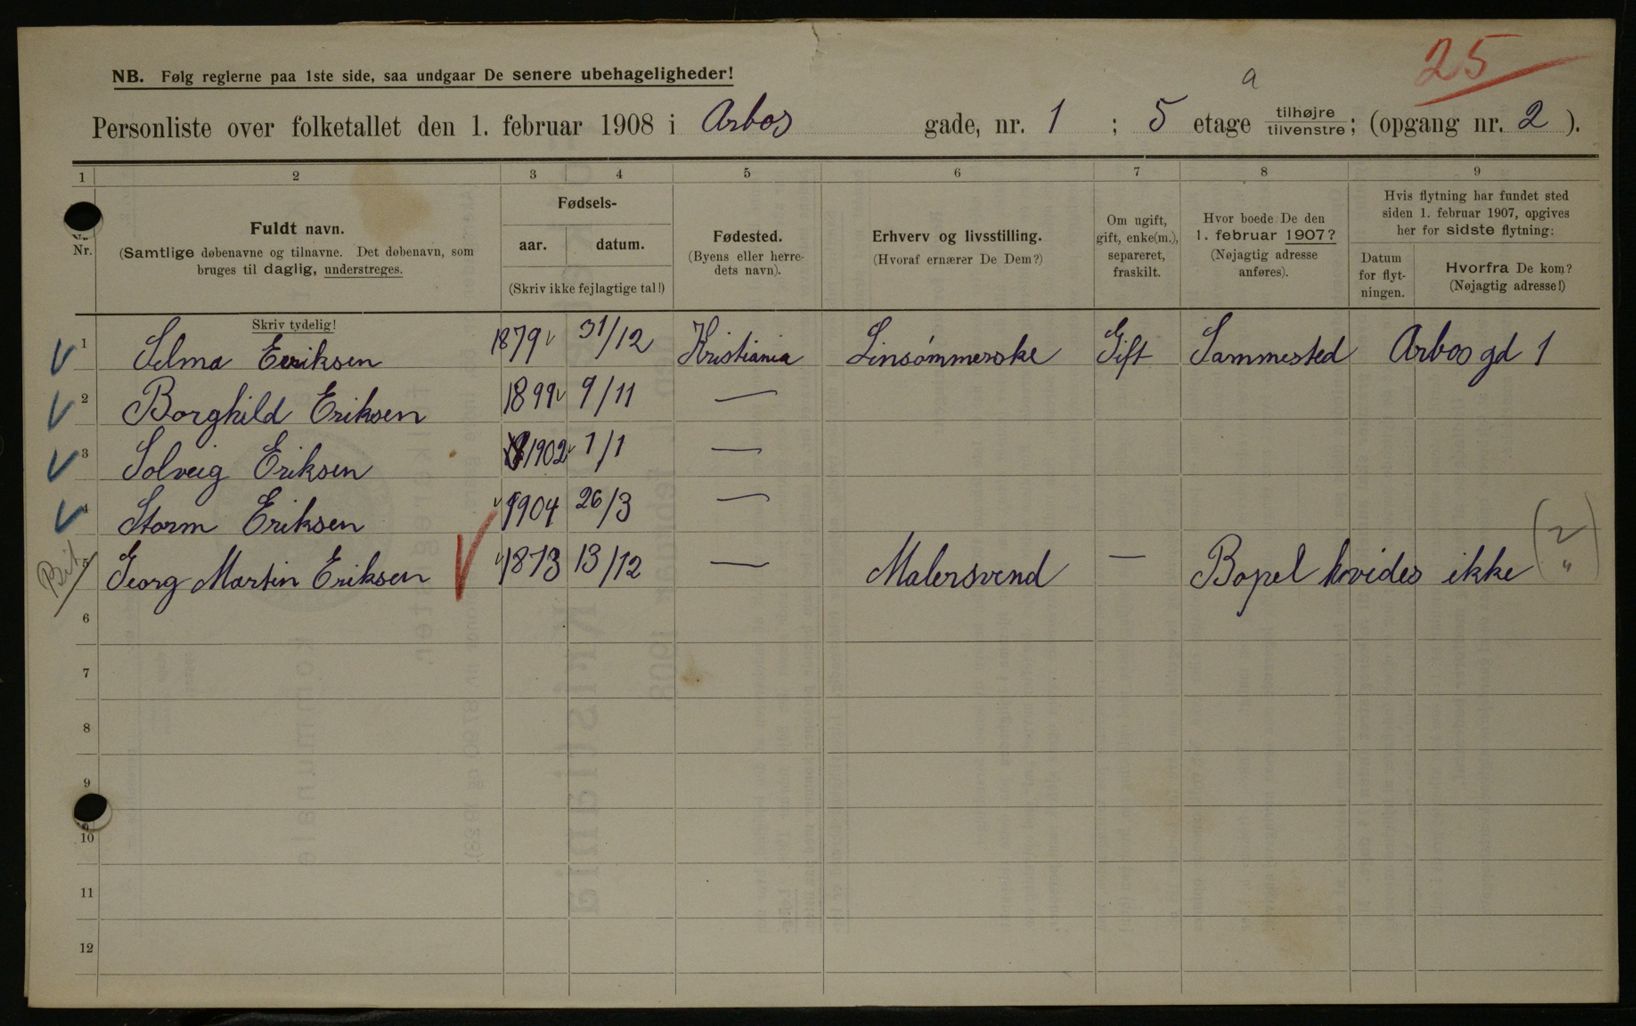 25
NB. Følg reglerne paa 1ste side, saa undgaar De senere ubehageligheder!
a
Personliste over folketallet den 1. februar 1908 i Arbos gade, nr. 1 ; 5 etage tilhøjre tilvenstre; (opgang nr. 2 ).
1 2 3 4 5 6 7 8 9
Nr.
Fuldt navn.
(Samtlige døbenavne og tilnavne. Det døbenavn, som
bruges til daglig, understreges.
Skriv tydelig!
Fødsels-
aar. datum.
(Skriv ikke fejlagtige tal!)
Fødested.
(Byens eller herre-
dets navn).
Erhverv og livsstilling.
(Hvoraf ernærer De Dem?)
Om ugift,
gift, enke(m.),
separeret,
fraskilt.
Hvor boede De den
1. februar 1907?
(Nøjagtig adresse
anføres).
Hvis flytning har fundet sted
siden 1. februar 1907, opgives
her for sidste flytning:
Datum
for flyt-
ningen.
Hvorfra De kom?
(Nøjagtig adresse!)
1 Selma Eeriksen 1879 31/12 Kristiania Linsömmerske Gift Sammested Arbos gd 1
2 Borghild Eriksen 1899 9/11 —
3 Solveig Eriksen 1902 1/1 —
4 Storm Eriksen 1904 26/3 —
Georg Martin Eriksen 1873 13/12 — Malersvend — Bopel hvides ikke
6
7
8
9
10
11
12